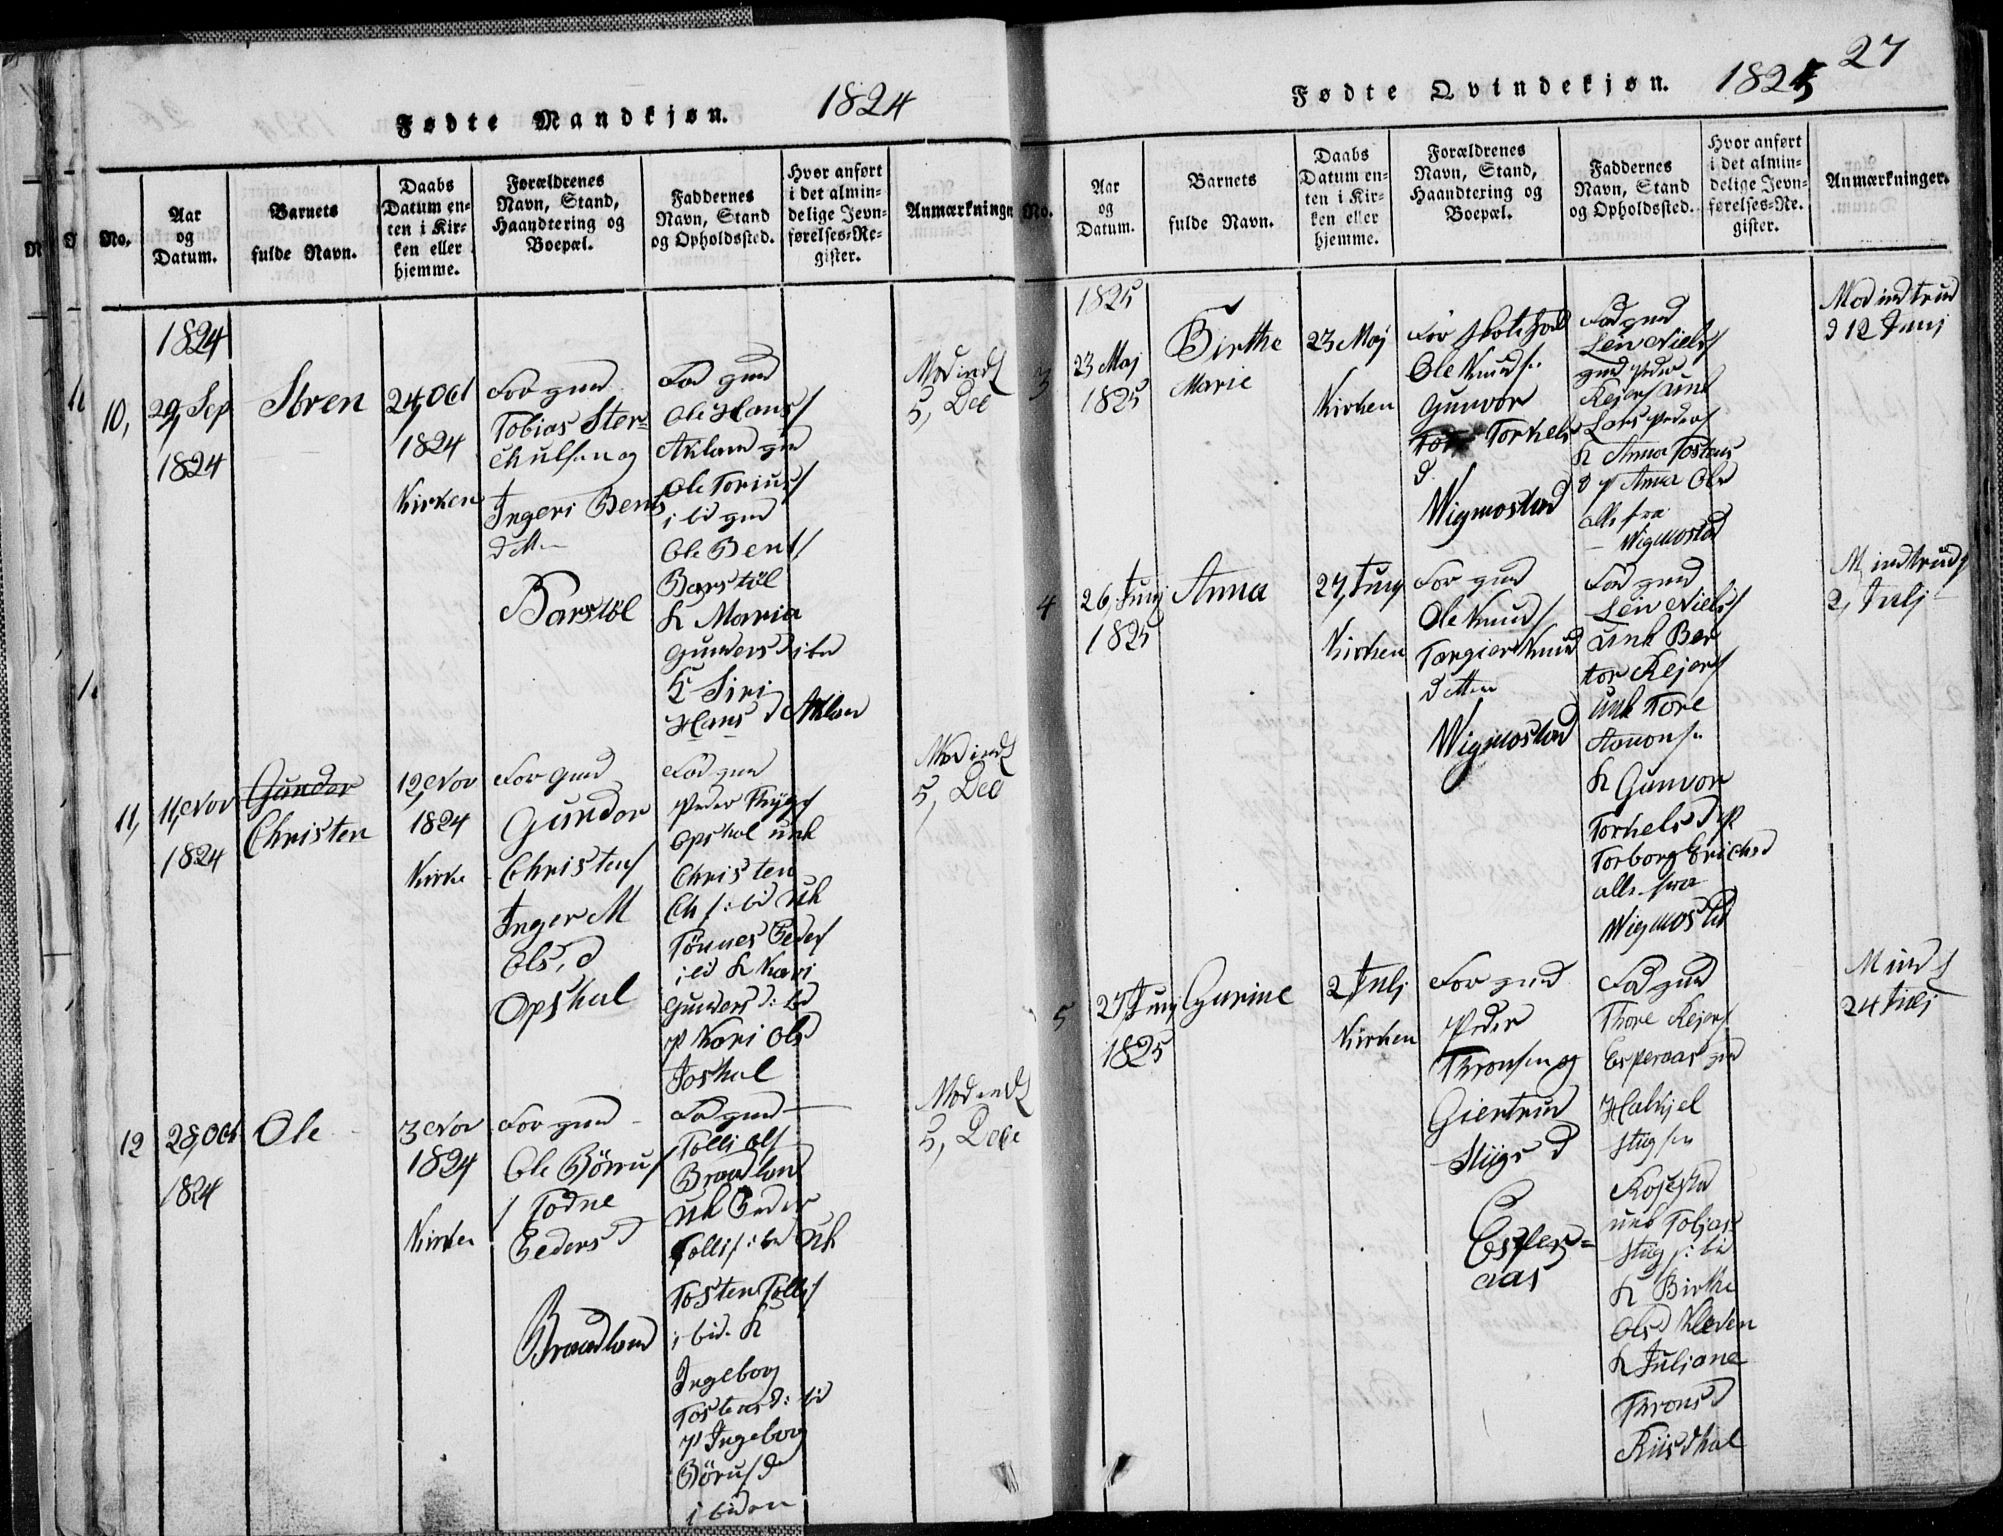 Fødte Mandkjøn. 1824
No.
Aar og Datum.
Barnets fulde Navn.
Daabs Datum enten i Kirken eller hjemme.
Forældrenes Navn, Stand, Haandtering og Boepæl.
Faddernes Navn, Stand og Opholdssted.
Hvor anført i det almindelige Jevnførelses-Register.
Anmærkninge
1824
10,
29, Sep
1824
Sören
24, Oct
1824
Kirken
For gmd
Tobias Ster=
Ingeri Bents
datter
Barstöl
Fad gmd
Ole Hans
Akland gm
Ole Torius
i bd gmd
Ole Bent
Barstöl
K Maria
Gunders d ibd
K Siri
Hans d Aklan
Mod ind
5, Dec
11,
11, Nov
1824
Gundor
Christen
12, Nov
1824
Kirke
For gmd
Gundor
Christens
Inger M
Ols, d
Opshal
Fad gmd
Peder Thyg
Opshal unk
Christen
Ch s: bd Uk
Tönnes Peders
ibd K Kari
Gunders d: bd
P Kari Ols
Joshal
Mod ind
5, Dec
12
28, Oct
1824
Ole
3 Nov
1824
Kirken
For gmd
Ole Börrus
Todne
Peders d
Braadland
Fad gmd
Tolli Ols
Braadland
Uk Peder
Tollis: bd Uk
Tosten Tollis
i bid. K
Ingeborg
Tostens d: bd
P Ingeborg
Börus d
i bidem
Mod ind
5, Dece
27
Fødte Qvindekjøn. 1825
No.
Aar og Datum.
Barnets fulde Navn.
Daabs Datum enten i Kirken eller hjemme.
Forældrenes Navn, Stand, Haandtering og Boepæl.
Faddernes Navn, Stand og Opholdssted.
Hvor anført i det almindelige Jevnførelses-Re. gister.
Anmærkninger.
1825
3
23 Maj
1825
Birthe
Marie
23 Maj
Kirken
Ole Knuds:
Gunvor
Torkels
d
Wigmostad
Fad gmd
Lein Niels
gmd Peder
Kejers Unk
Lars Peders
K Anna Tostens
d P Anna Ols
alle fra
Wigmostad
Mod indtrud
d 12 Junij
4
26, Junij
1825
Anna
27, Juny
Kirken
For gmd
Ole Knuds
Torgier Knud
datter
Wigmostad
Fad gmd
Lein Niels
Unk Ber
tor Kejers
Unk Tore
K Gunvor
Torkels d P
Torborg Erichsd
alle fra
Wigmostd
M indtrud
2, Julj
5
27 Juny
1825
Gurine
2 Julj
Kirken
For gmd
Peder
Thronsen og
Giertrud
Stiigs d
Esper=
aas
Fad gmd
Thore Kejers
Esperaas gm
Halkjel
Stigsen
Rosestad
unk Tobjas
Stiig s: bd
K Birthe
Olsd Kleven
K Juljane
Throns d
Riisdhal
M ind
24 Julj